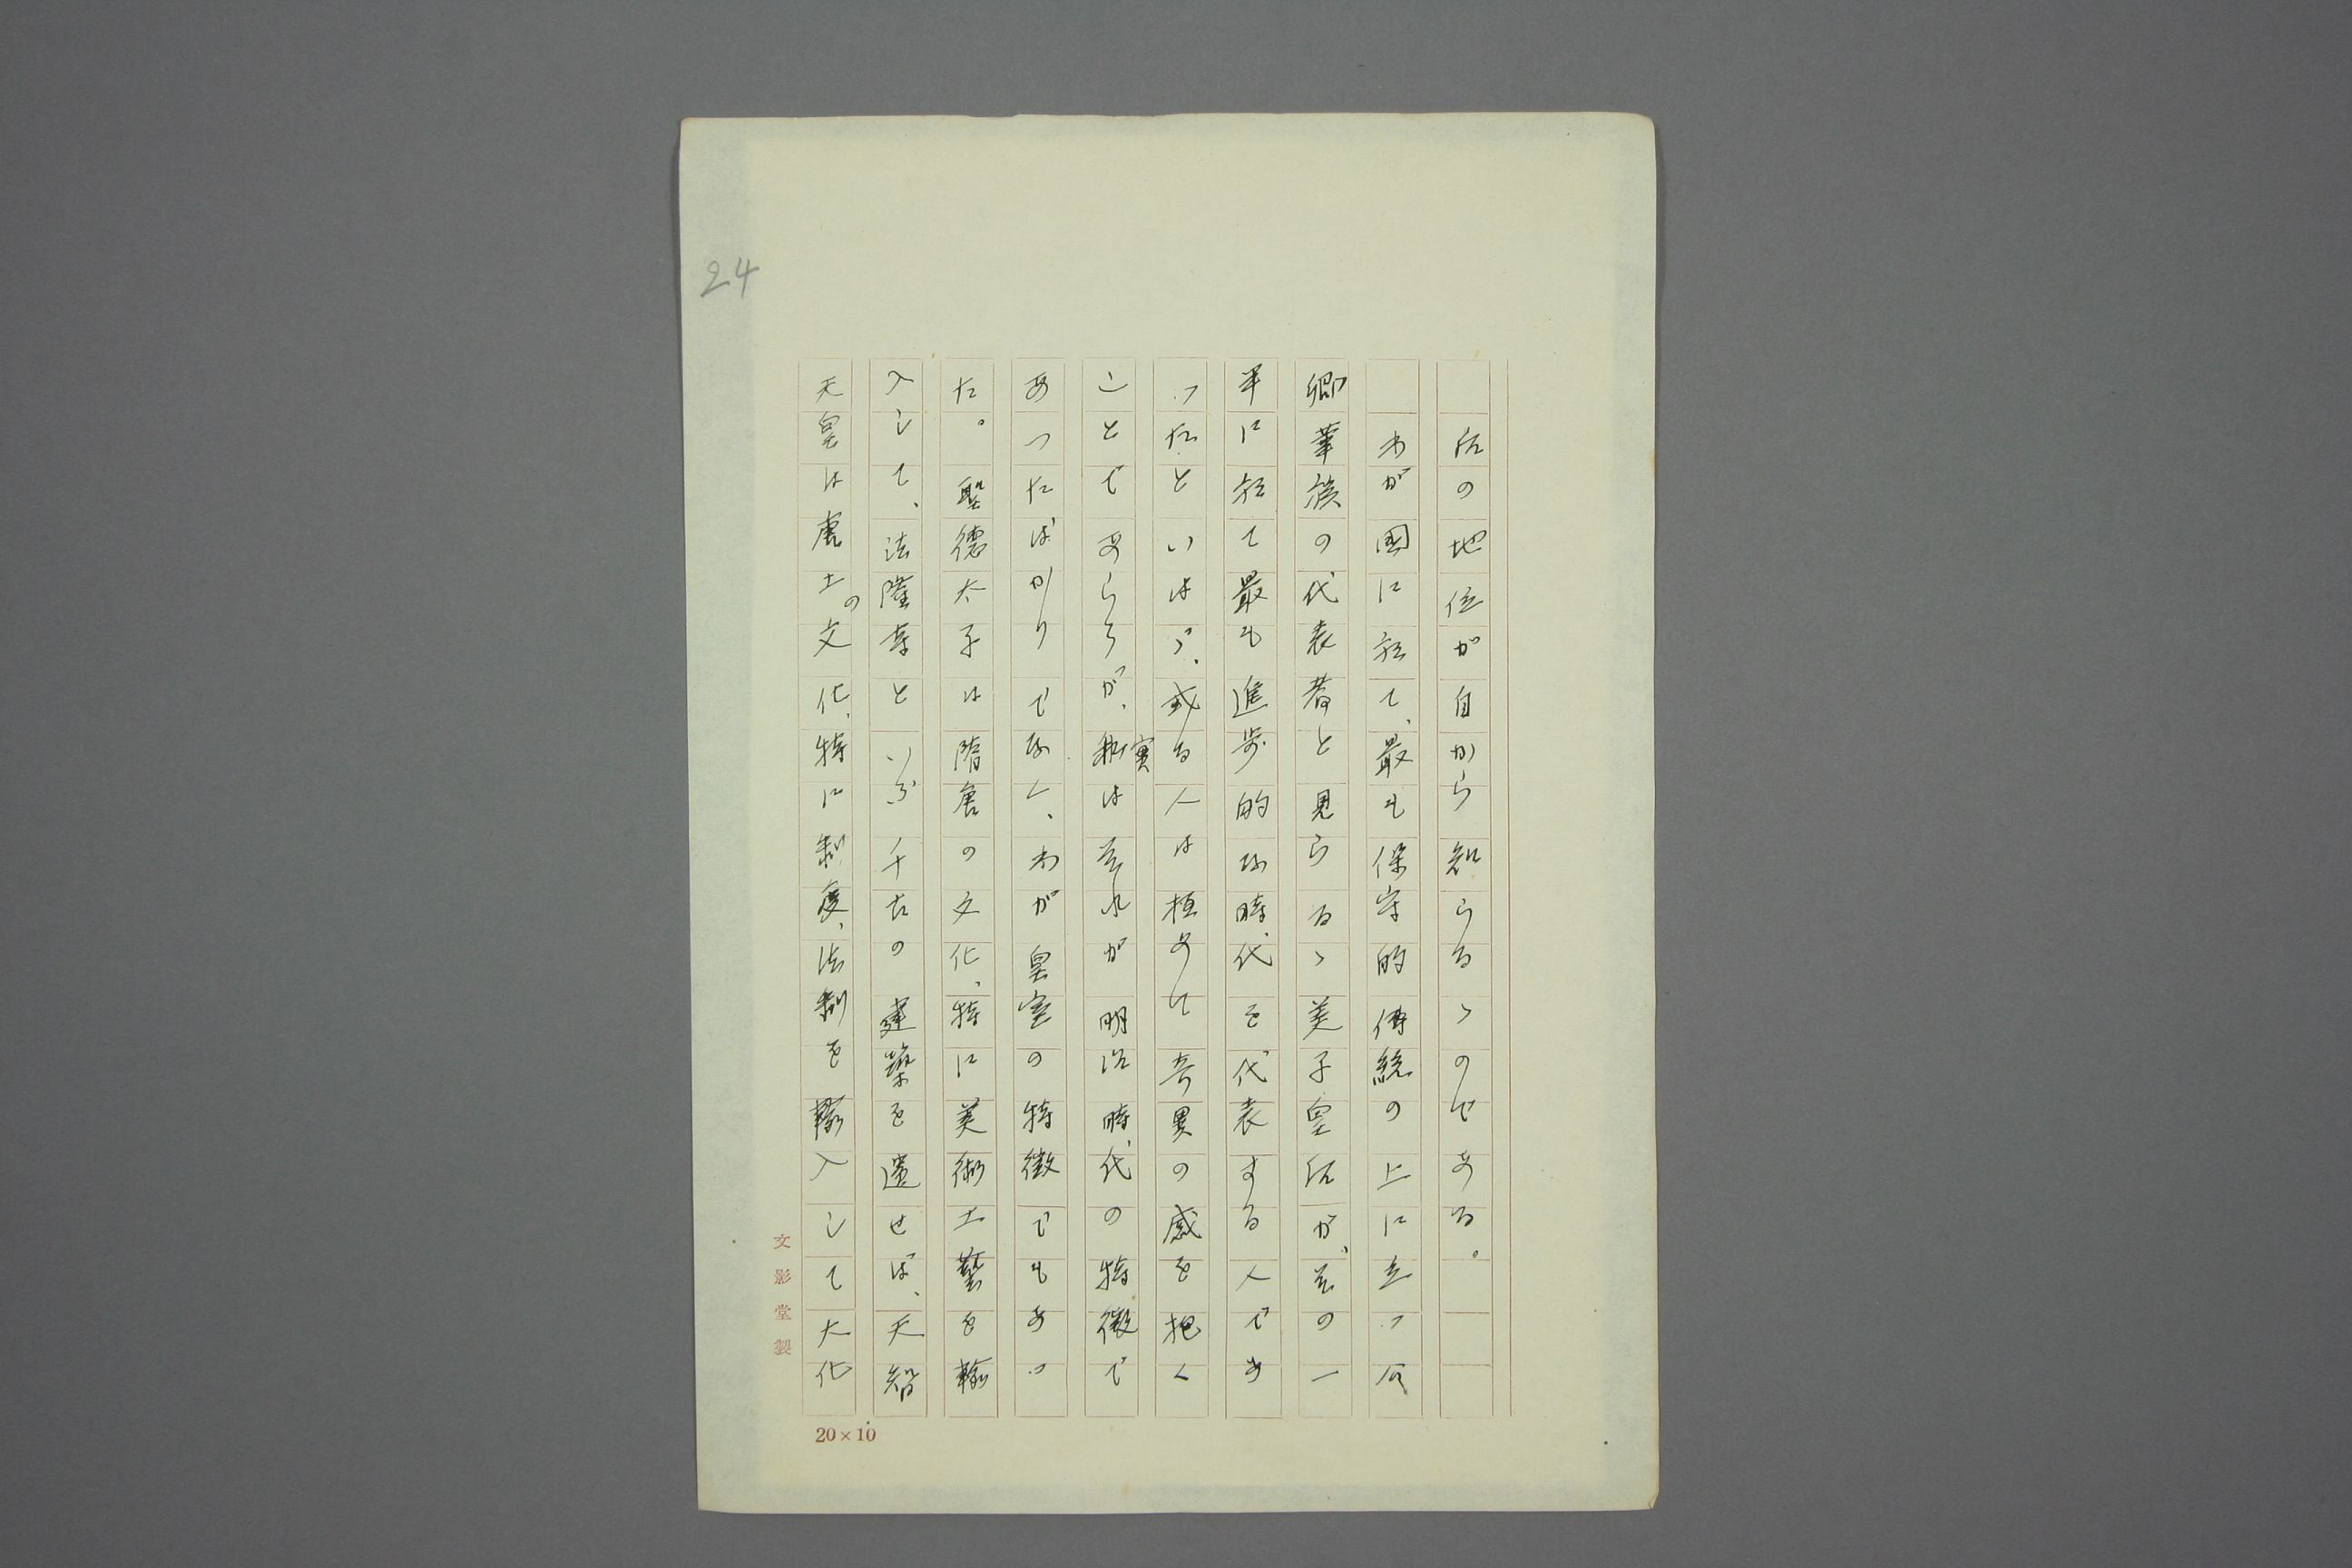 24
后の地位が自から知らるゝのである。
わが國に於て、最も保守的傳統の上に立つ公
卿華族の代表者と見らるゝ美子皇后が、其の一
半に於て最も進歩的な時代を代表する人であ
つたといはゞ、或る人は極めて奇異の感を抱く
ことであらうが、實はそれが明治時代の特徴で
あつたばかりでなく、わが皇室の特徴でもあつ
た。聖德太子は隋唐の文化、特に美術工藝を輸
入して、法隆寺といふ千古の建築を遺せば、天智
天皇は唐土の文化、特に制度、法制を輸入して大化
文影堂製
20×10